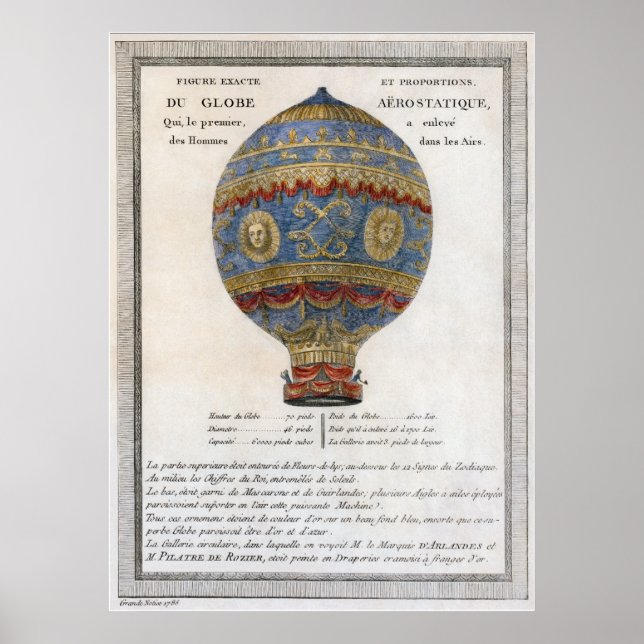 FIGURE EXACTE ET PROPORTIONS,
DU GLOBE AËROSTATIQUE,
Qui, le premier, a enlevé
des Hommes dans les Airs.
Hauteur du Globe ........ 70 pieds
Diametre ........ 46 pieds
Capacité ...... 60000 pieds cubes
Poids du Globe ........ 1600 Liv.
Poids qu'il a enlevé 16 à 1700 Liv.
La Gallerie avoit 3 pieds de largeur.
La partie superieure étoit entourée de Fleurs-de-lys; au-dessous les 12 Signes du Zodiaque.
Au milieu les Chiffres du Roi, entremêlés de Soleils.
Le bas, étoit garni de Mascarons et de Guirlandes; plusieurs Aigles à ailes éployées
paroissoient suporter en l'air cette puissante Machine).
Tous ces ornemens etoient de couleur d'or sur un beau fond bleu, ensorte que ce su-
perbe Globe paroissoit être d'or et d'azur.
La Gallerie circulaire, dans laquelle on voyoit M. le Marquis D'ARLANDES et
M. PILATRE DE ROZIER, etoit peinte en Draperies cramoisi à franges d'or.